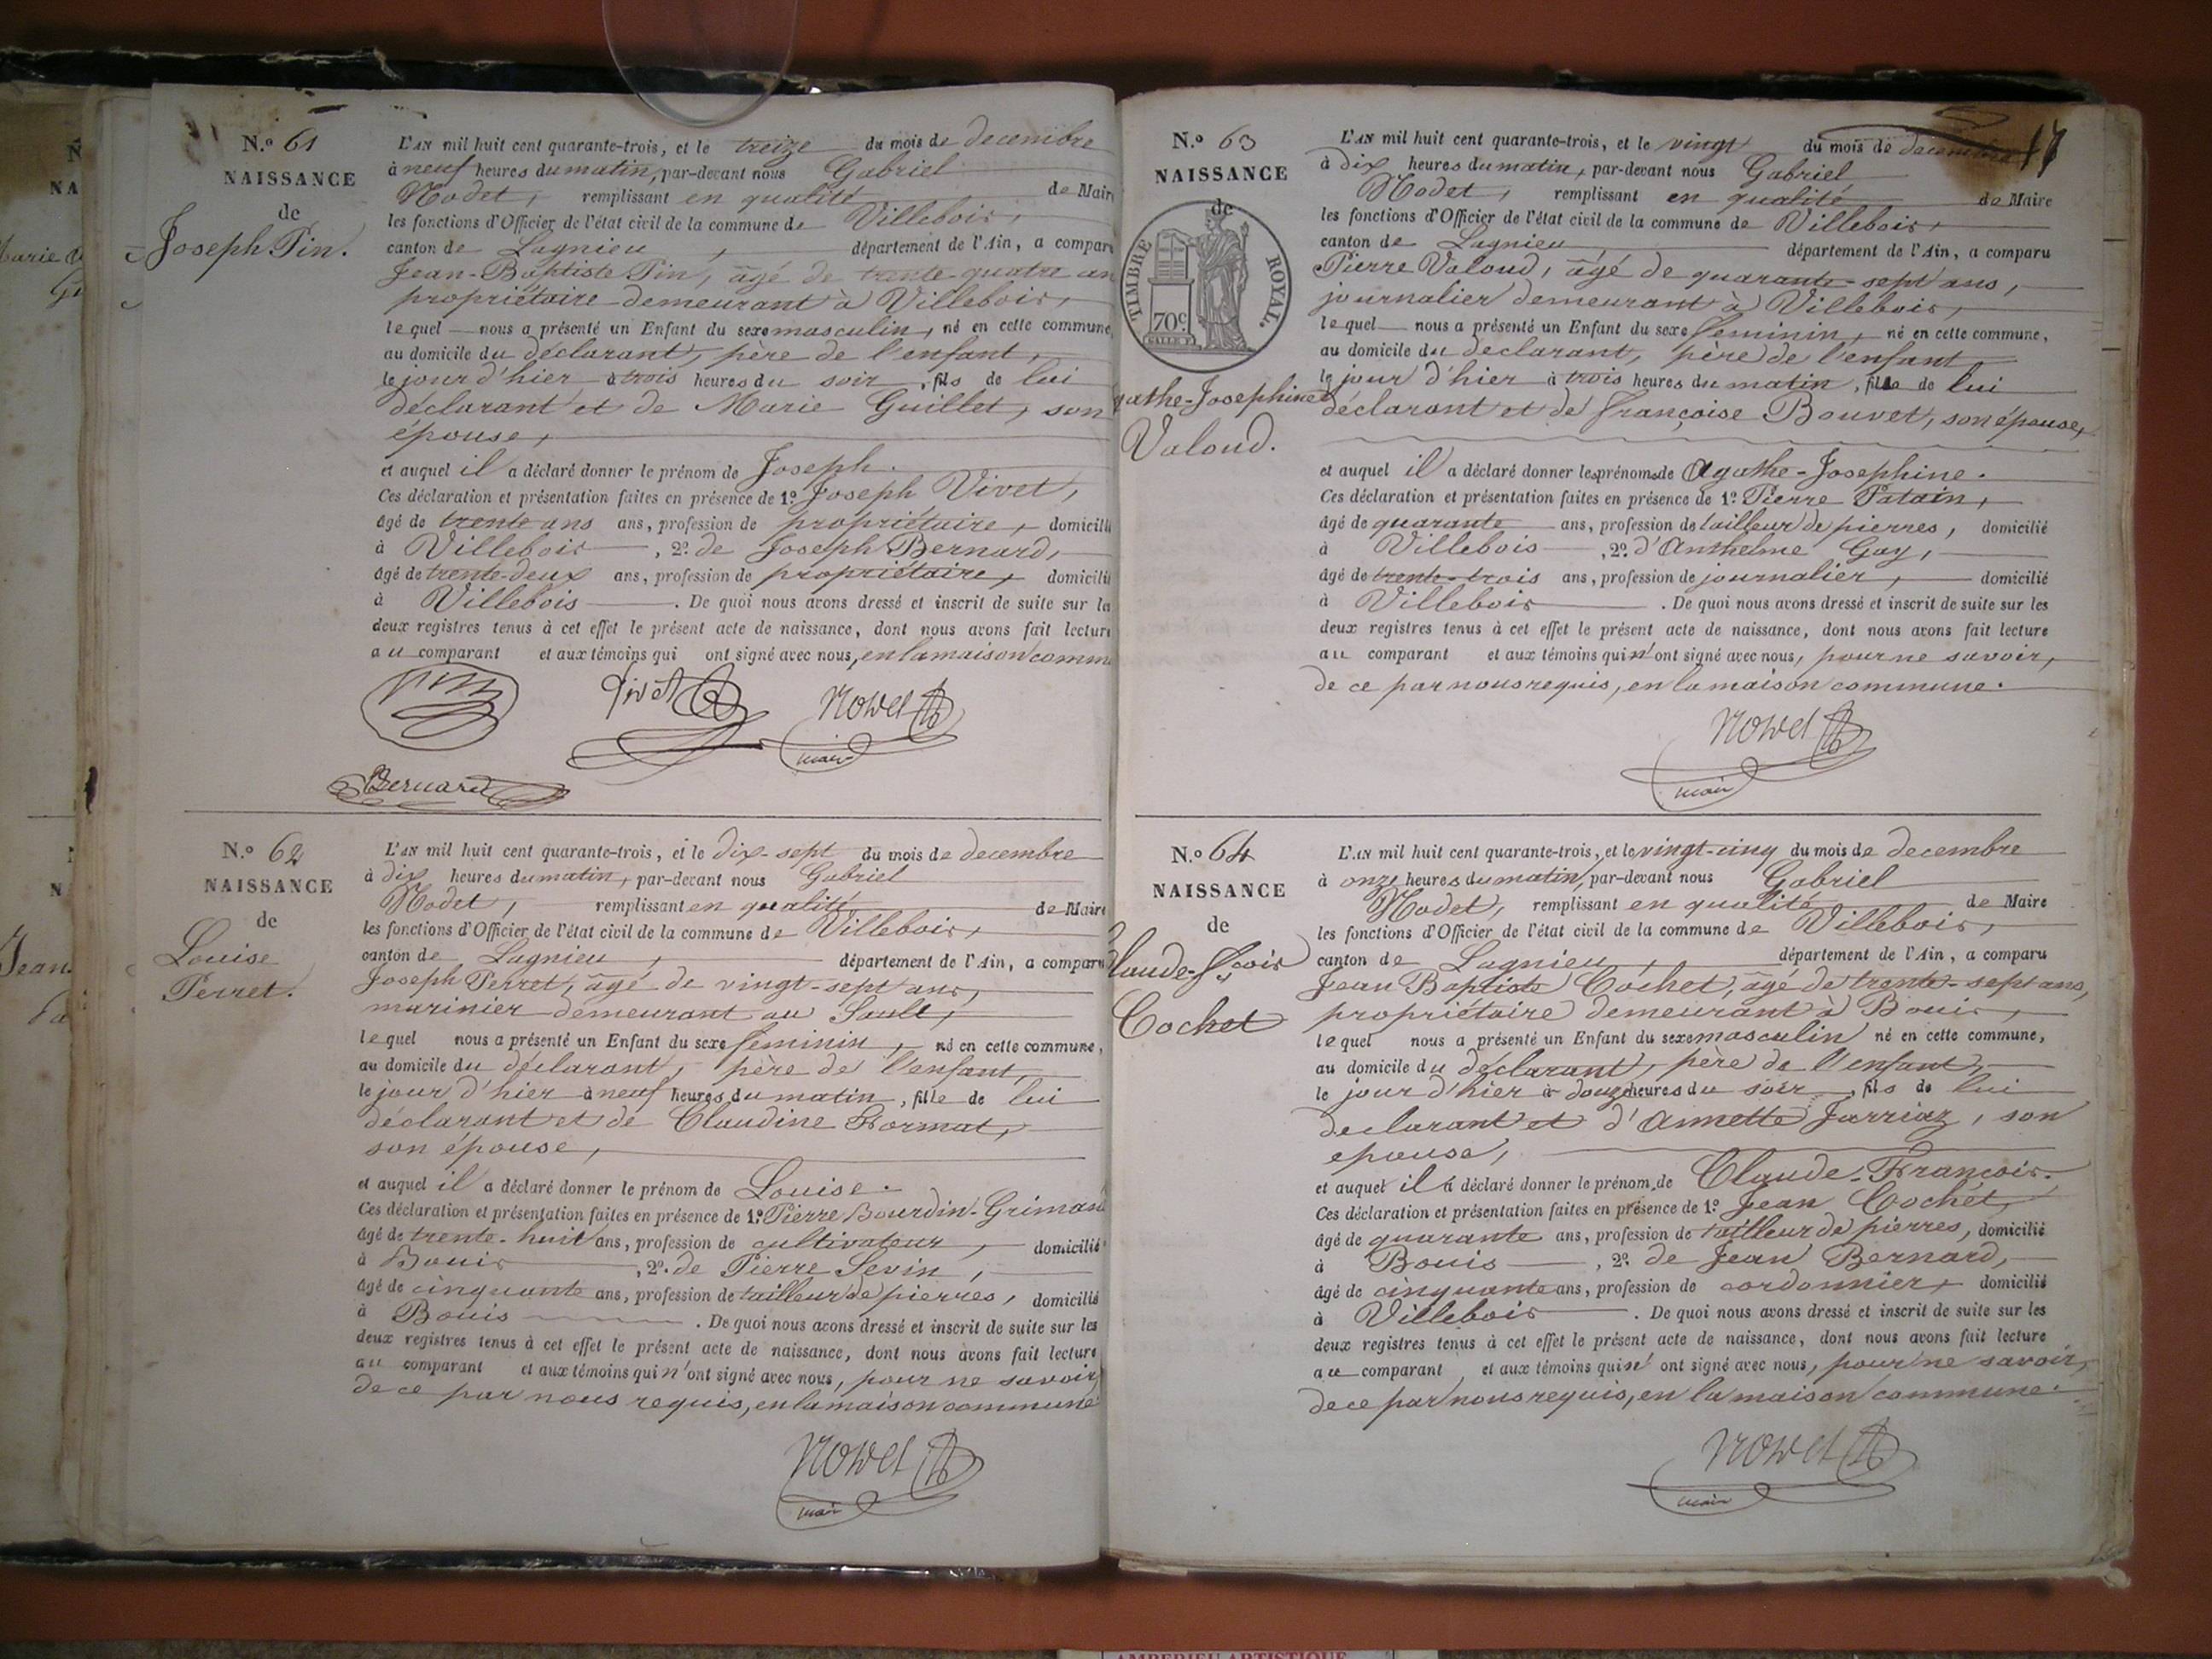 N.º 61
NAISSANCE
de
Joseph Pin.
L'AN mil huit cent quarante-trois, et le treize du mois de decembre
à neuf heures du matin, par-devant nous Gabriel
Nodet, remplissant en qualité de Maire
les fonctions d'Officier de l'état civil de la commune de Villebois,
canton de Lagnieu, département de l'Ain, a comparu
Jean-Baptiste Pin, âgé de trente-quatre ans
propriétaire demeurant à Villebois,
lequel nous a présenté un Enfant du sexe masculin, né en cette commune,
au domicile du déclarant, père de l'enfant,
le jour d'hier à trois heures du soir, fils de lui
déclarant et de Marie Guillet, son
épouse,
et auquel il a déclaré donner le prénom de Joseph.
Ces déclaration et présentation faites en présence de 1º Joseph Vivet,
âgé de trente ans ans, profession de propriétaire, domicilié
à Villebois, 2º de Joseph Bernard,
âgé de trente-deux ans, profession de propriétaire, domicilié
à Villebois. De quoi nous avons dressé et inscrit de suite sur les
deux registres tenus à cet effet le présent acte de naissance, dont nous avons fait lecture
au comparant et aux témoins qui ont signé avec nous, en la maison comm
Pin Vivet Nodet
maire
Bernard
N.º 62
NAISSANCE
de
Louise
Perret.
L'AN mil huit cent quarante-trois, et le dix-sept du mois de decembre
à dix heures du matin, par-devant nous Gabriel
Nodet, remplissant en qualité de Maire
les fonctions d'Officier de l'état civil de la commune de Villebois,
canton de Lagnieu, département de l'Ain, a comparu
Joseph Perret, âgé de vingt-sept ans,
marinier demeurant au Sault,
lequel nous a présenté un Enfant du sexe feminin, né en cette commune,
au domicile du déclarant, père de l'enfant,
le jour d'hier à neuf heures du matin, fille de lui
déclarant et de Claudine Format,
son épouse,
et auquel il a déclaré donner le prénom de Louise.
Ces déclaration et présentation faites en présence de 1º Pierre Bourdin-Grimaud
âgé de trente-huit ans, profession de cultivateur, domicilié
à Bouis, 2º de Pierre Sevin,
âgé de cinquante ans, profession de tailleur de pierres, domicilié
à Bouis. De quoi nous avons dressé et inscrit de suite sur les
deux registres tenus à cet effet le présent acte de naissance, dont nous avons fait lecture
au comparant et aux témoins qui n'ont signé avec nous, pour ne savoir,
de ce par nous requis, en la maison commune
Nodet
maire
17
N.º 63
NAISSANCE
de
TIMBRE ROYAL.
70c
gathe-Josephine
Valoud.
L'AN mil huit cent quarante-trois, et le vingt du mois de decembre
à dix heures du matin, par-devant nous Gabriel
Nodet, remplissant en qualité de Maire
les fonctions d'Officier de l'état civil de la commune de Villebois,
canton de Lagnieu, département de l'Ain, a comparu
Pierre Valoud, âgé de quarante-sept ans,
journalier demeurant à Villebois,
lequel nous a présenté un Enfant du sexe feminin, né en cette commune,
au domicile du declarant, père de l'enfant
le jour d'hier à trois heures du matin, fille de lui
déclarant et de françoise Bouvet, son épouse,
et auquel il a déclaré donner les prénoms de Agathe-Josephine.
Ces déclaration et présentation faites en présence de 1º Pierre Patain,
âgé de quarante ans, profession de tailleur de pierres, domicilié
à Villebois, 2º d'Anthelme Gay,
âgé de trente-trois ans, profession de journalier, domicilié
à Villebois. De quoi nous avons dressé et inscrit de suite sur les
deux registres tenus à cet effet le présent acte de naissance, dont nous avons fait lecture
au comparant et aux témoins qui n'ont signé avec nous, pour ne savoir,
de ce par nous requis, en la maison commune.
Nodet
maire
N.º 64
NAISSANCE
de
Claude-Fçois
Cochet
L'AN mil huit cent quarante-trois, et le vingt-cinq du mois de decembre
à onze heures du matin, par-devant nous Gabriel
Nodet, remplissant en qualité de Maire
les fonctions d'Officier de l'état civil de la commune de Villebois,
canton de Lagnieu, département de l'Ain, a comparu
Jean Baptiste Cochet, âgé de trente-sept ans,
propriétaire demeurant à Bouis,
lequel nous a présenté un Enfant du sexe masculin né en cette commune,
au domicile du déclarant, père de l'enfant,
le jour d'hier à douze heures du soir, fils de lui
declarant et d'Annette Jarriaz, son
epouse,
et auquel il a déclaré donner le prénom de Claude-François.
Ces déclaration et présentation faites en présence de 1º Jean Cochet,
âgé de quarante ans, profession de tailleur de pierres, domicilié
à Bouis, 2º de Jean Bernard,
âgé de cinquante ans, profession de cordonnier, domicilié
à Villebois. De quoi nous avons dressé et inscrit de suite sur les
deux registres tenus à cet effet le présent acte de naissance, dont nous avons fait lecture
au comparant et aux témoins qui n'ont signé avec nous, pour ne savoir,
de ce par nous requis, en la maison commune.
Nodet
maire